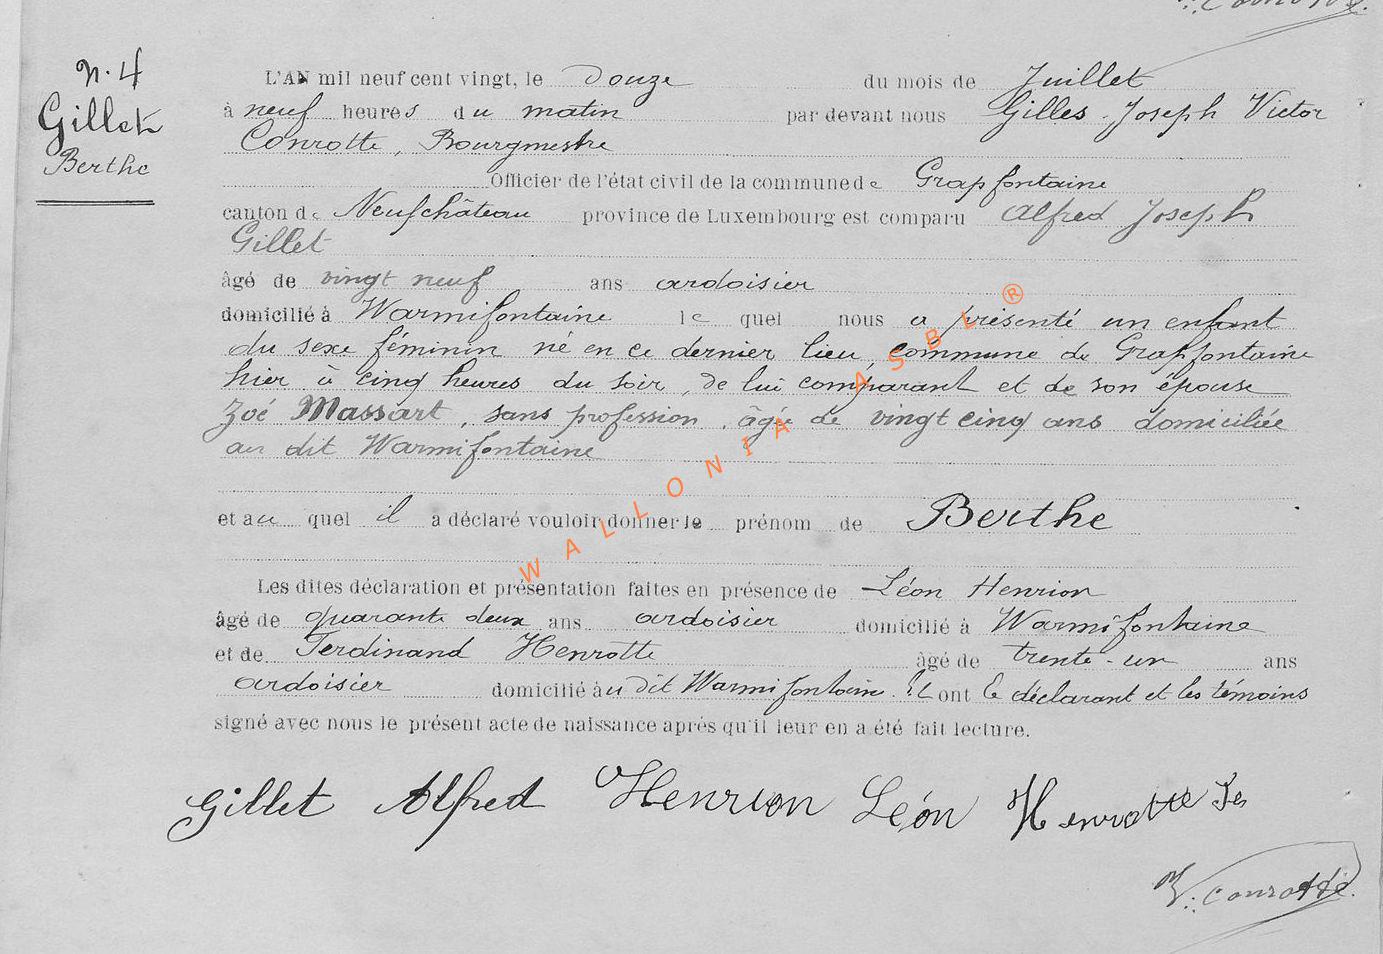 N. 4
Gillet
Berthe
L'AN mil neuf cent vingt, le douze du mois de Juillet
à neuf heures du matin par devant nous Gilles Joseph Victor
Conrotte, Bourgmestre
Officier de l'état civil de la commune de Grapfontaine
canton de Neufchâteau province de Luxembourg est comparu Alfred Joseph
Gillet
âgé de vingt neuf ans ardoisier
domicilié à Warmifontaine le quel nous a présenté un enfant
du sexe féminin né en ce dernier lieu, commune de Grapfontaine
hier à cinq heures du soir, de lui comparant et de son épouse
Zoé Massart, sans profession, âgée de vingt cinq ans domiciliée
au dit Warmifontaine
et au quel il a déclaré vouloir donner le prénom de Berthe
Les dites déclaration et présentation faites en présence de Léon Henrion
âgé de quarante deux ans ardoisier domicilié à Warmifontaine
et de Ferdinand Henrotte âgé de trente-un ans
ardoisier domicilié au dit Warmifontaine. Et ont le déclarant et les témoins
signé avec nous le présent acte de naissance après qu'il leur en a été fait lecture.
Gillet Alfred Henrion Léon Henrotte Fer
V. Conrotte.
WALLONIA ASBL ®